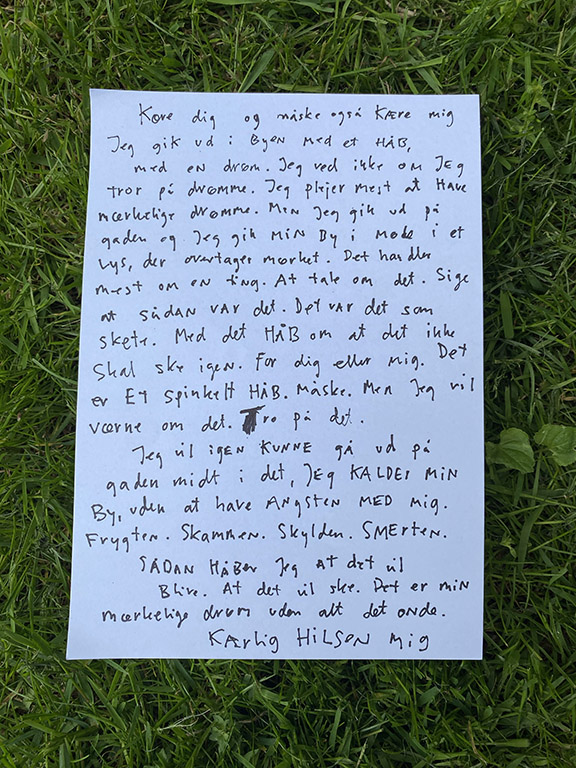 Kære dig og måske også Kære mig
Jeg gik ud i Byen med et HÅB,
med en drøm. Jeg ved ikke om Jeg
tror på drømme. Jeg plejer mest at Have
mærkelige drømme. Men Jeg gik ud på
gaden og Jeg gik Min By i Møde i et
lys, der overtager mørket. Det handler
mest om en ting. At tale om det. Sige
at SÅDAN VAR det. Det var det som
skete. Med det HÅB om at det ikke
Skal ske igen. For dig eller mig. Det
er Et spinkelt HÅB. Måske. Men Jeg vil
værne om det. Tro på det.
Jeg vil igen KUNNE gå ud på
gaden midt i det, Jeg KALDER MIN
By, uden at have ANGSTEN MED Mig.
Frygten. Skammen. Skylden. SMErten.
SÅDAN HÅBer Jeg At det vil
Blive. At det vil ske. Det er min
mærkelige drøm uden alt det onde.
KÆrlig HILSEN Mig